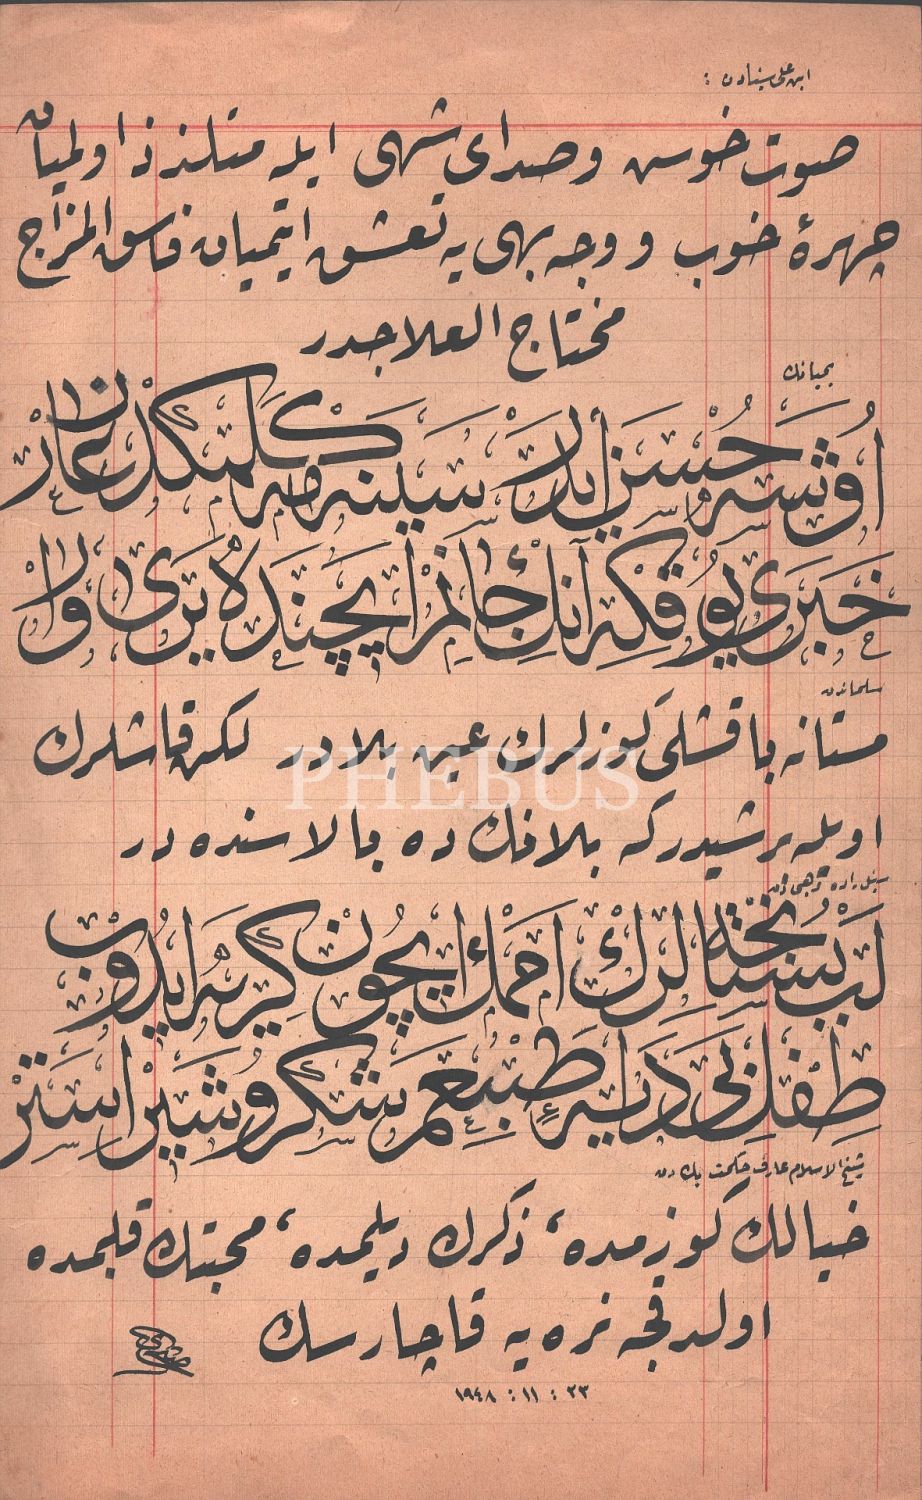 ابن علی سینادن :
صوت خوس وصدای شهی ایله متلذذ اولمیان
چهرهٔ خوب و وجه بهی یه تعشق ایتمیان فاسق المزاج
محتاج العلاجدر
یحیانك
خبری یوقکه آنك جانم ایچنده یری وار
سلماندن
مستانه باقشلی کوزلرك عین بلادر لکن قاشلرك
اویله برشیدرکه بلانك ده بالاسنده در
سنبل زاده وهبی دن
لب بسته لرك اممك ایچون کریه ایدوب
طفل بی دایه طبعم شکر وشیر استر
شیخ الاسلام عارف حکمت بك دن
خیالك کوزمده، ذکرك دیلمده، محبتك قلبمده
اولدقجه نره یه قاچارسك
٢٣ : ١١ : ١٩٤٨
PHEBUS